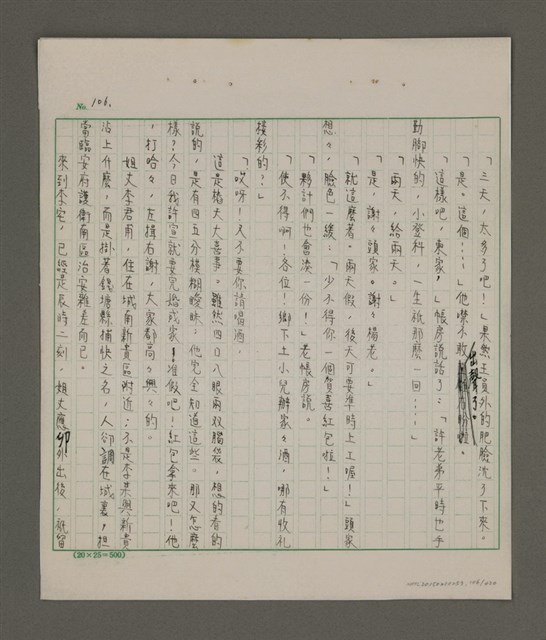 No. 106.
「三天，太多了吧！」果然王員外的肥臉沈了下來。
「是。這個……」他噤不敢出聲了。
「這樣吧，東家，」帳房說話了：「許老弟平時也手
勤腳快的，小登科，一生祇那麼一回……」
「兩天，給兩天。」
「是，謝々頭家。謝々楊老。」
「就這麼著。兩天假，後天可要準時上工喔！」頭家
想々，臉色一緩，「少不得你一個賀喜紅包啦！」
「夥計們也會湊一份！」老帳房說。
「使不得啊！各位！鄉下上小兒辦家々酒，哪有收札
樸彩的？」
「哎呀！又不要你請喝酒。
這是樁天大喜事。雖然四〇八眼兩双腦袋，想的看的
說的，是有四五分模糊曖昧，他完全知道這些。那又怎麼
樣？今日我許宣就要完婚成家！准假吧！紅包拿來吧！他
，打哈々，左揖右謝，大家都高々興々的。
姐丈李君甫，住在城南新貴區附近；不是李某與新貴
沾上什麼，而是掛著錢塘縣捕快之名，人卻調在城裏，担
當臨安府護衛南區治安雜差而已。
來到李宅，已經是辰時二刻，姐丈應卯外出後，祇留
(20×25=500)